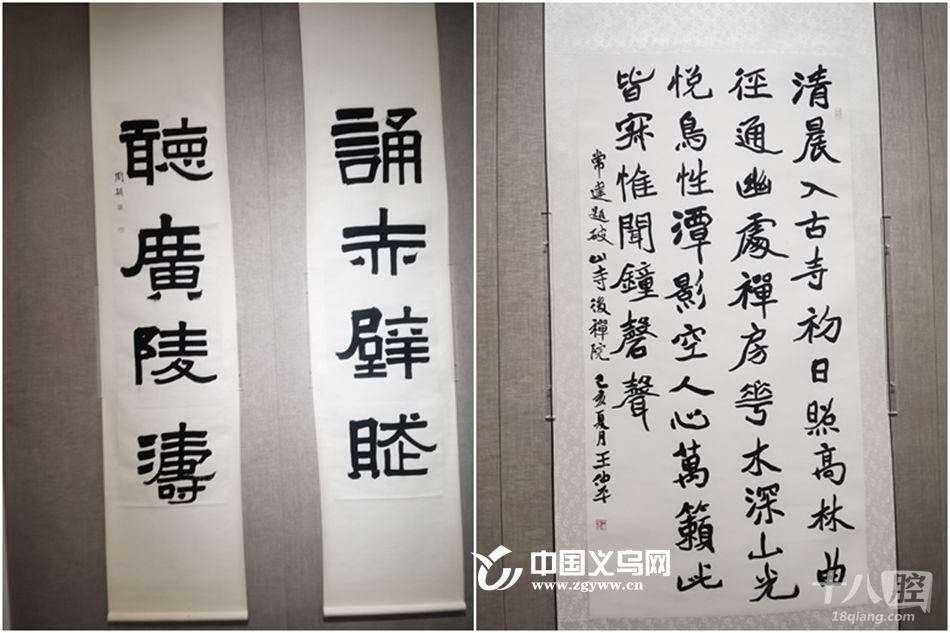 誦赤壁賦
聽廣陵濤
清晨入古寺初日照高林曲
径通幽處禪房花木深山光
悅鳥性潭影空人心萬籟此
皆寂惟聞鐘磬聲
常建題破山寺後禪院 己亥夏月王
中国义乌网
www.zgyww.cn
十八腔
18qiang.com